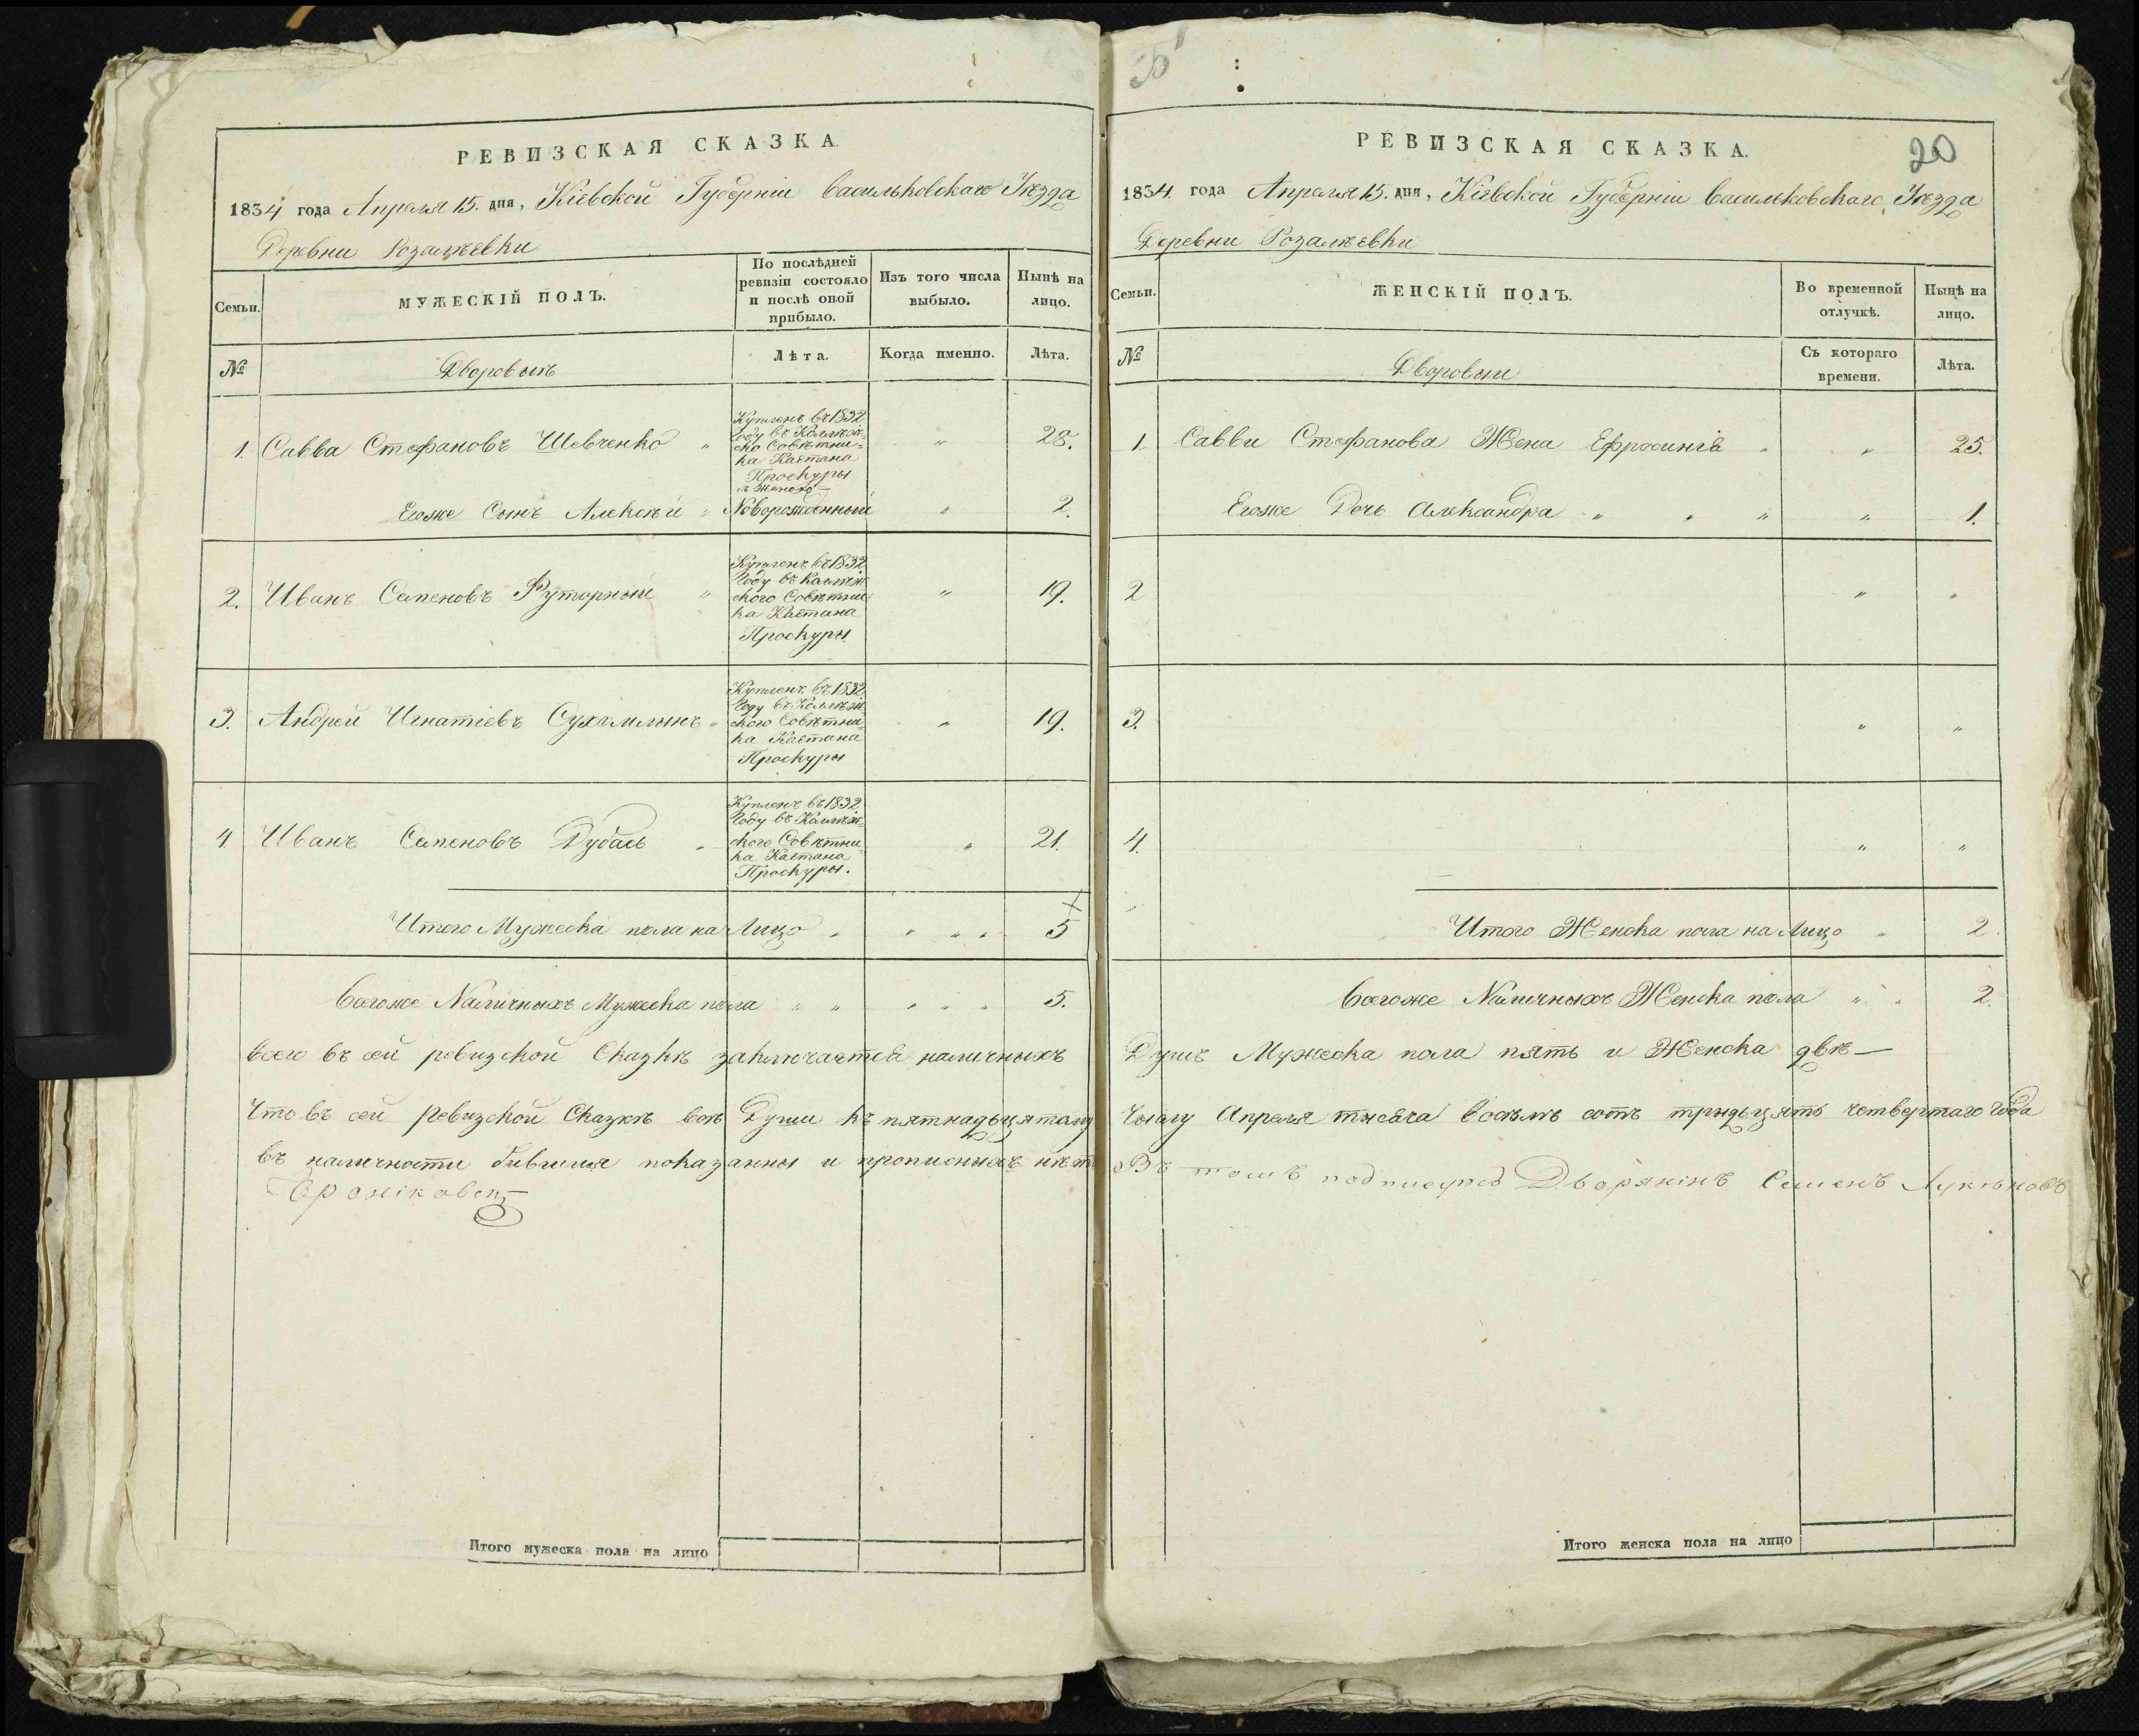 РЕВИЗСКАЯ СКАЗКА.
1834 года Апреля 15. дня, Кіевской Губерніи Васильковскаго Уѣзда
Деревни Розалѣевки
Семьи.
МУЖЕСКІЙ ПОЛЪ.
По послѣдней
ревизіи состояло
и послѣ оной
прибыло.
Изъ того числа
выбыло.
Нынѣ на
лицо.
№
Дворовыхъ
Лѣта.
Когда именно.
Лѣта.
1. Савва Стефановъ Шевченко "
Купленъ въ 1832
Году въ Коллеж-
ско Совѣтни-
ка Каетана
Проскуры
съ женою
" 28.
Егоже Сынъ Алексѣй " Новорожденный " 2.
2. Иванъ Семеновъ Футорный "
Купленъ въ 1832
Году въ Коллеж
ского Совѣтни
ка Каетана
Проскуры
" 19.
3. Андрей Игнатіевъ Сухамлынъ "
Купленъ въ 1832
Году въ Коллеж
ского Совѣтни-
ка Каетана
Проскуры
" 19.
4. Иванъ Семеновъ Дубась "
Купленъ въ 1832
Году въ Коллеж-
ского Совѣтни-
ка Каетана
Проскуры.
" 21.
Итого Мужеска пола на Лицо " " " " 5
Всегоже Наличныхъ Мужеска пола " " " " " 5.
Всего въ сей ревизской Сказкѣ заключается наличныхъ
Что въ сей Ревизской Сказкѣ всѣ Души къ пятнадьцятому
въ наличности бывшия показанны и прописныхъ нѣтъ
Итого мужеска пола на лицо
20
РЕВИЗСКАЯ СКАЗКА.
1834. года Апреля 15. дня, Кіевской Губерніи Васильковскаго Уѣзда
Деревни Розалѣевки
Семьи.
ЖЕНСКІЙ ПОЛЪ.
Во временной
отлучкѣ.
Нынѣ на
лицо.
№
Дворовыи
Съ котораго
времени.
Лѣта.
1. Савви Стефанова Жена Ефросинія " " 25.
Егоже Дочь Александра " " " " 1.
2 " "
3. " "
4. " "
Итого Женска пола на Лицо " 2.
Всегоже Наличныхъ Женска пола " " 2.
Душъ Мужеска пола пять и Женска двѣ —
Числу Апреля тысяча восѣмъ сотъ тридьцять четвертаго Года
Въ томъ подписуюсь Дворянінъ Семенъ
Итого женска пола на лицо